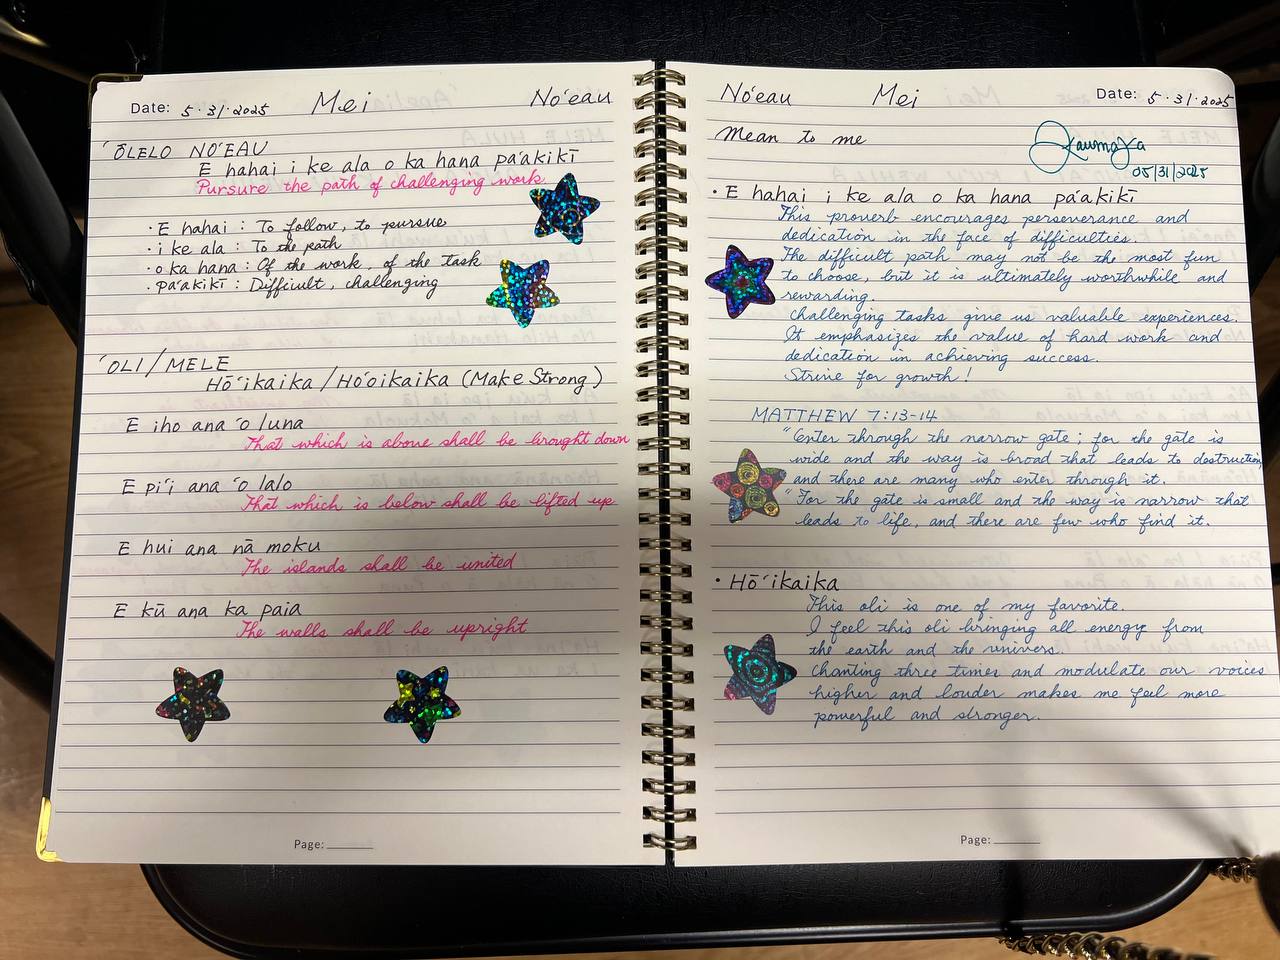 Date: 5.31.2025 Mei No'eau
'ŌLELO NO'EAU
E hahai i ke ala o ka hana pa'akikī
Pursure the path of challenging work
·E hahai : To follow, to pursue
·i ke ala : To the path
·o ka hana : Of the work, of the task
·pa'akikī : Difficult, challenging
'OLI/MELE
Hō'ikaika/Ho'oikaika (Make Strong)
E iho ana 'o luna
That which is above shall be brought down
E pi'i ana 'o lalo
That which is below shall be lifted up
E hui ana nā moku
The islands shall be united
E kū ana ka paia
The walls shall be upright
Page:
No'eau Mei Date: 5.31.2025
Mean to me
05/31/2025
·E hahai i ke ala o ka hana pa'akikī
This proverb encourages perseverance and
dedication in the face of difficulties.
The difficult path may not be the most fun
to choose, but it is ultimately worthwhile and
rewarding.
Challenging tasks give us valuable experiences.
It emphasizes the value of hard work and
dedication in achieving success.
Strive for growth!
MATTHEW 7:13-14
"Enter through the narrow gate; for the gate is
wide and the way is broad that leads to destruction,
and there are many who enter through it.
"For the gate is small and the way is narrow that
leads to life, and there are few who find it.
·Hō'ikaika
This oli is one of my favorite.
I feel this oli bringing all energy from
the earth and the univers.
Chanting three times and modulate our voices
higher and louder makes me feel more
powerful and stronger.
Page: